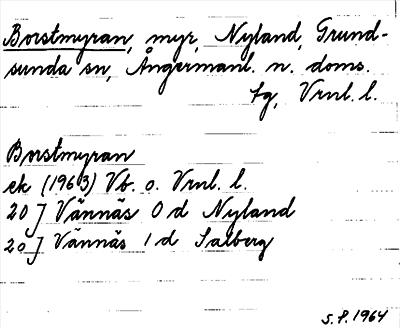 Borstmyran, myr, Nyland, Grund-
sunda sn, Ångermanl. n. doms.
tg, Vrnl. l.
Borstmyran
ek (1963) Vb. o. Vrnl. l.
20 J Vännäs 0 d Nyland
20 J Vännäs 1 d Salberg
S. P. 1964